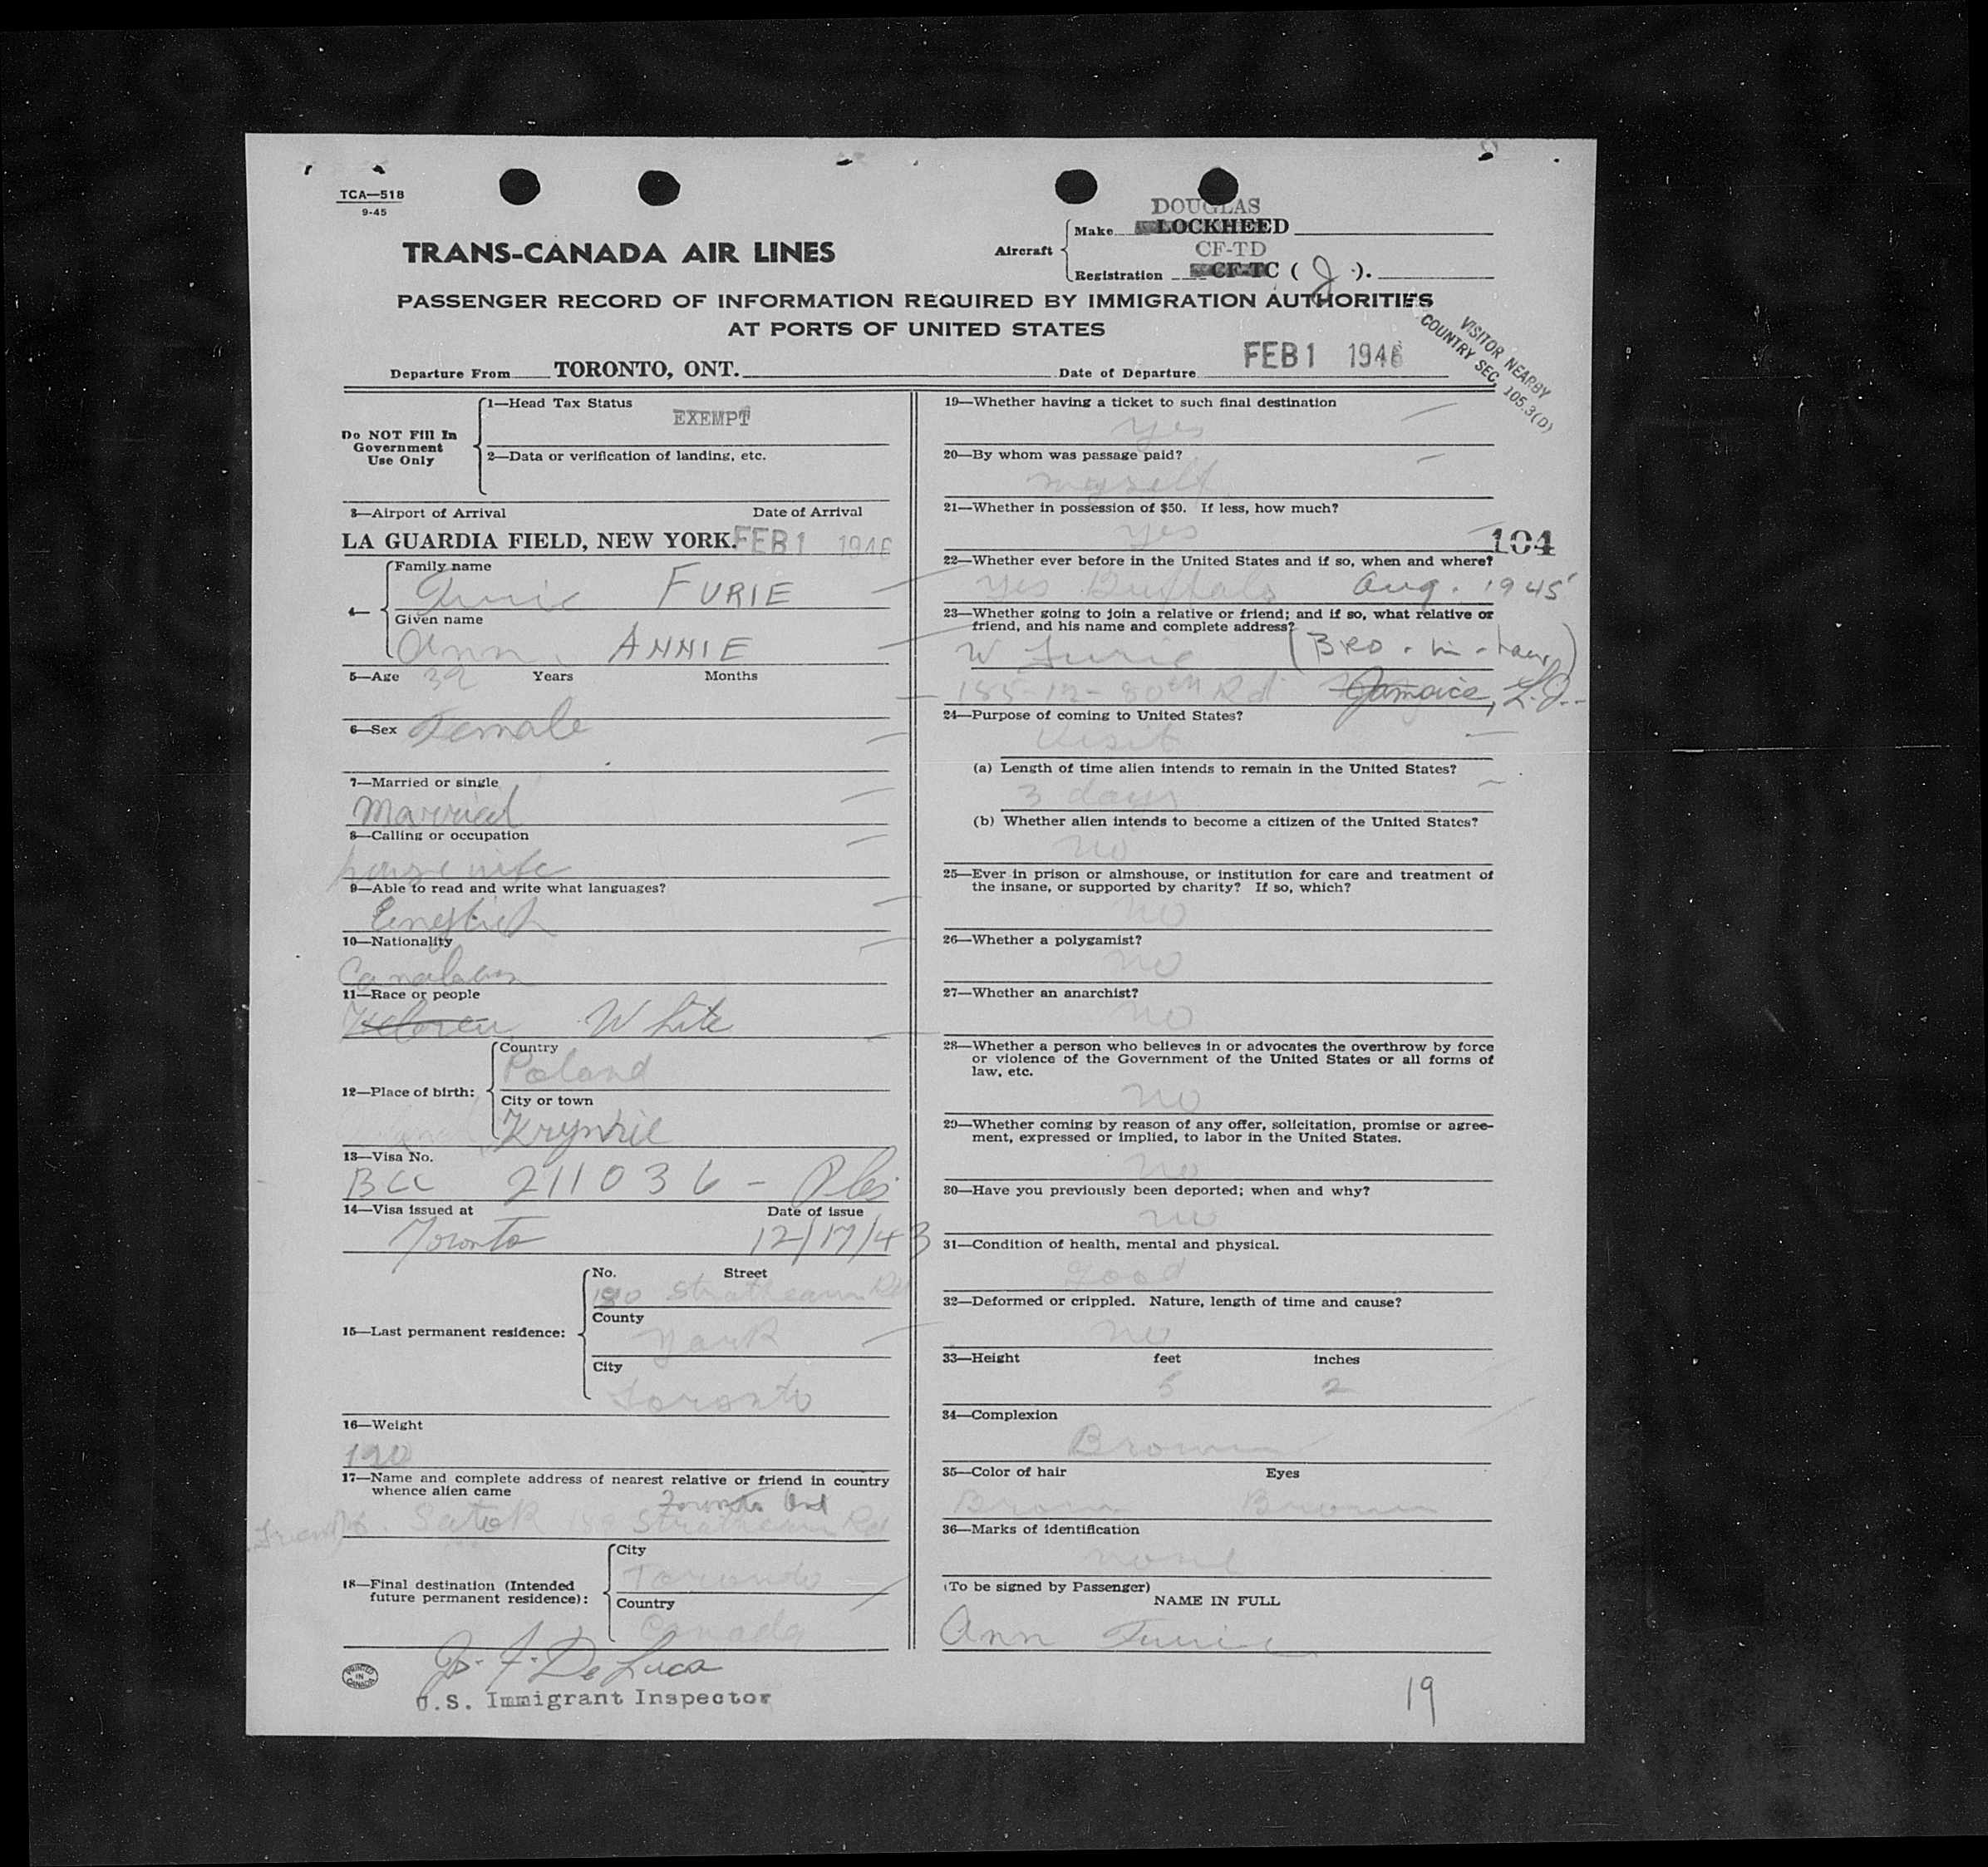 TCA—518
9-45
DOUGLAS
Aircraft
Make LOCKHEED
CF-TD
Registration CF-TC ( J ).
TRANS-CANADA AIR LINES
PASSENGER RECORD OF INFORMATION REQUIRED BY IMMIGRATION AUTHORITIES
AT PORTS OF UNITED STATES
VISITOR NEARBY
COUNTRY SEC. 105.3(D)
Departure From TORONTO, ONT. Date of Departure FEB 1 1946
Do NOT Fill In
Government
Use Only
1—Head Tax Status
EXEMPT
2—Data or verification of landing, etc.
3—Airport of Arrival Date of Arrival
LA GUARDIA FIELD, NEW YORK. FEB 1 1946
4—
Family name
Furie FURIE
Given name
Ann ANNIE
5—Age 39 Years Months
6—Sex Female
7—Married or single
Married
8—Calling or occupation
housewife
9—Able to read and write what languages?
English
10—Nationality
Canadian
11—Race or people
Hebrew White
12—Place of birth:
Country
Poland
City or town
Krynkie
13—Visa No.
BCC 211036 -
14—Visa issued at Date of issue
Toronto 12/17/43
15—Last permanent residence:
No. Street
Strathearn Rd
County
York
City
Toronto
16—Weight
120
17—Name and complete address of nearest relative or friend in country
whence alien came
Toronto Ont
Strathearn Rd
18—Final destination (Intended
future permanent residence):
City
Toronto
Country
Canada
PRINTED
IN
CANADA
De Luca
U.S. Immigrant Inspector
19—Whether having a ticket to such final destination
Yes
20—By whom was passage paid?
myself
21—Whether in possession of $50. If less, how much?
yes
104
22—Whether ever before in the United States and if so, when and where?
Yes Buffalo Aug. 1945
23—Whether going to join a relative or friend; and if so, what relative or
friend, and his name and complete address?
W Furie (Bro-in-law)
185-12-80th Rd Jamaica, L.I.
24—Purpose of coming to United States?
Visit
(a) Length of time alien intends to remain in the United States?
3 days
(b) Whether alien intends to become a citizen of the United States?
no
25—Ever in prison or almshouse, or institution for care and treatment of
the insane, or supported by charity? If so, which?
no
26—Whether a polygamist?
no
27—Whether an anarchist?
no
28—Whether a person who believes in or advocates the overthrow by force
or violence of the Government of the United States or all forms of
law, etc.
no
29—Whether coming by reason of any offer, solicitation, promise or agree-
ment, expressed or implied, to labor in the United States.
no
30—Have you previously been deported; when and why?
no
31—Condition of health, mental and physical.
good
32—Deformed or crippled. Nature, length of time and cause?
no
33—Height feet inches
5 2
34—Complexion
Brown
35—Color of hair Eyes
Brown Brown
36—Marks of identification
none
(To be signed by Passenger)
NAME IN FULL
Ann Furie
19